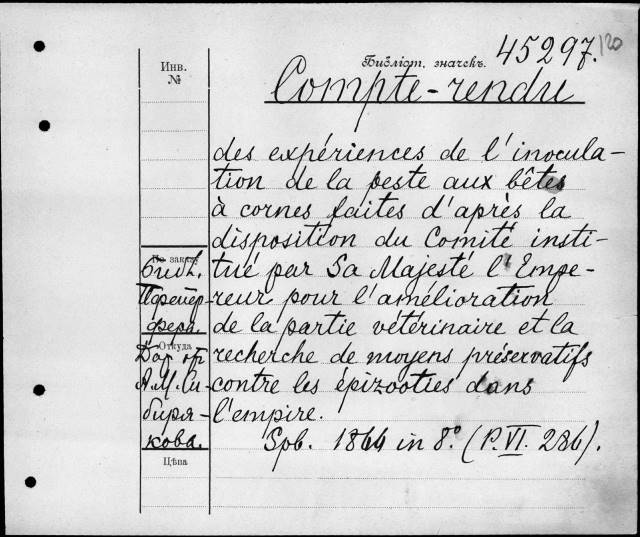 Библіот. значекъ. 45297. 120
Инв.
№
Compte-rendu
des expériences de l'inocula-
tion de la peste aux bêtes
à cornes faites d'après la
disposition du Comité insti-
tué par Sa Majesté l'Empe-
reur pour l'amélioration
de la partie vétérinaire et la
recherche de moyens préservatifs
contre les épizooties dans
l'empire.
Spb. 1864 in 8.° (P.VI. 286).
По заказу
Библ.
Пфейер-
фера.
Откуда
Дар от
А.М. Си-
биря-
кова.
Цѣна